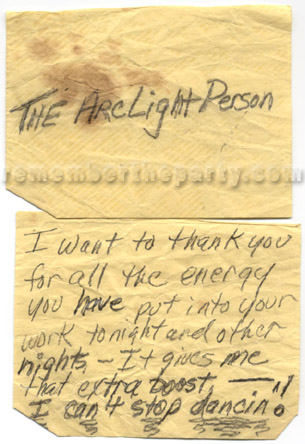 THE ArcLight Person
remembertheparty.com
I want to thank you
for all the energy
you have put into your
work tonight and other
nights. — It gives me
that extra boost, —!!
I can't stop dancin!